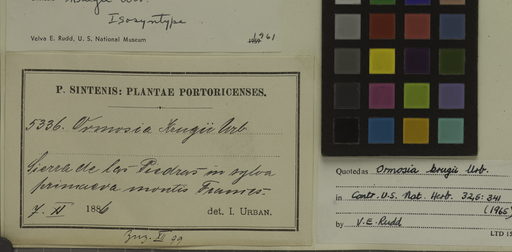 Krugii Urb.
Isosyntype
Velva E. Rudd, U. S. National Museum
1961
P. SINTENIS: PLANTAE PORTORICENSES.
5336. Ormosia Krugii Urb
Sierra de las Piedras in sylva
primaeva montis
7. XI 1886 det. I. URBAN.
99
Quoted as Ormosia krugii Urb.
in Contr. U.S. Nat. Herb. 32,5: 341
(1965)
by V.E. Rudd
LTD 15